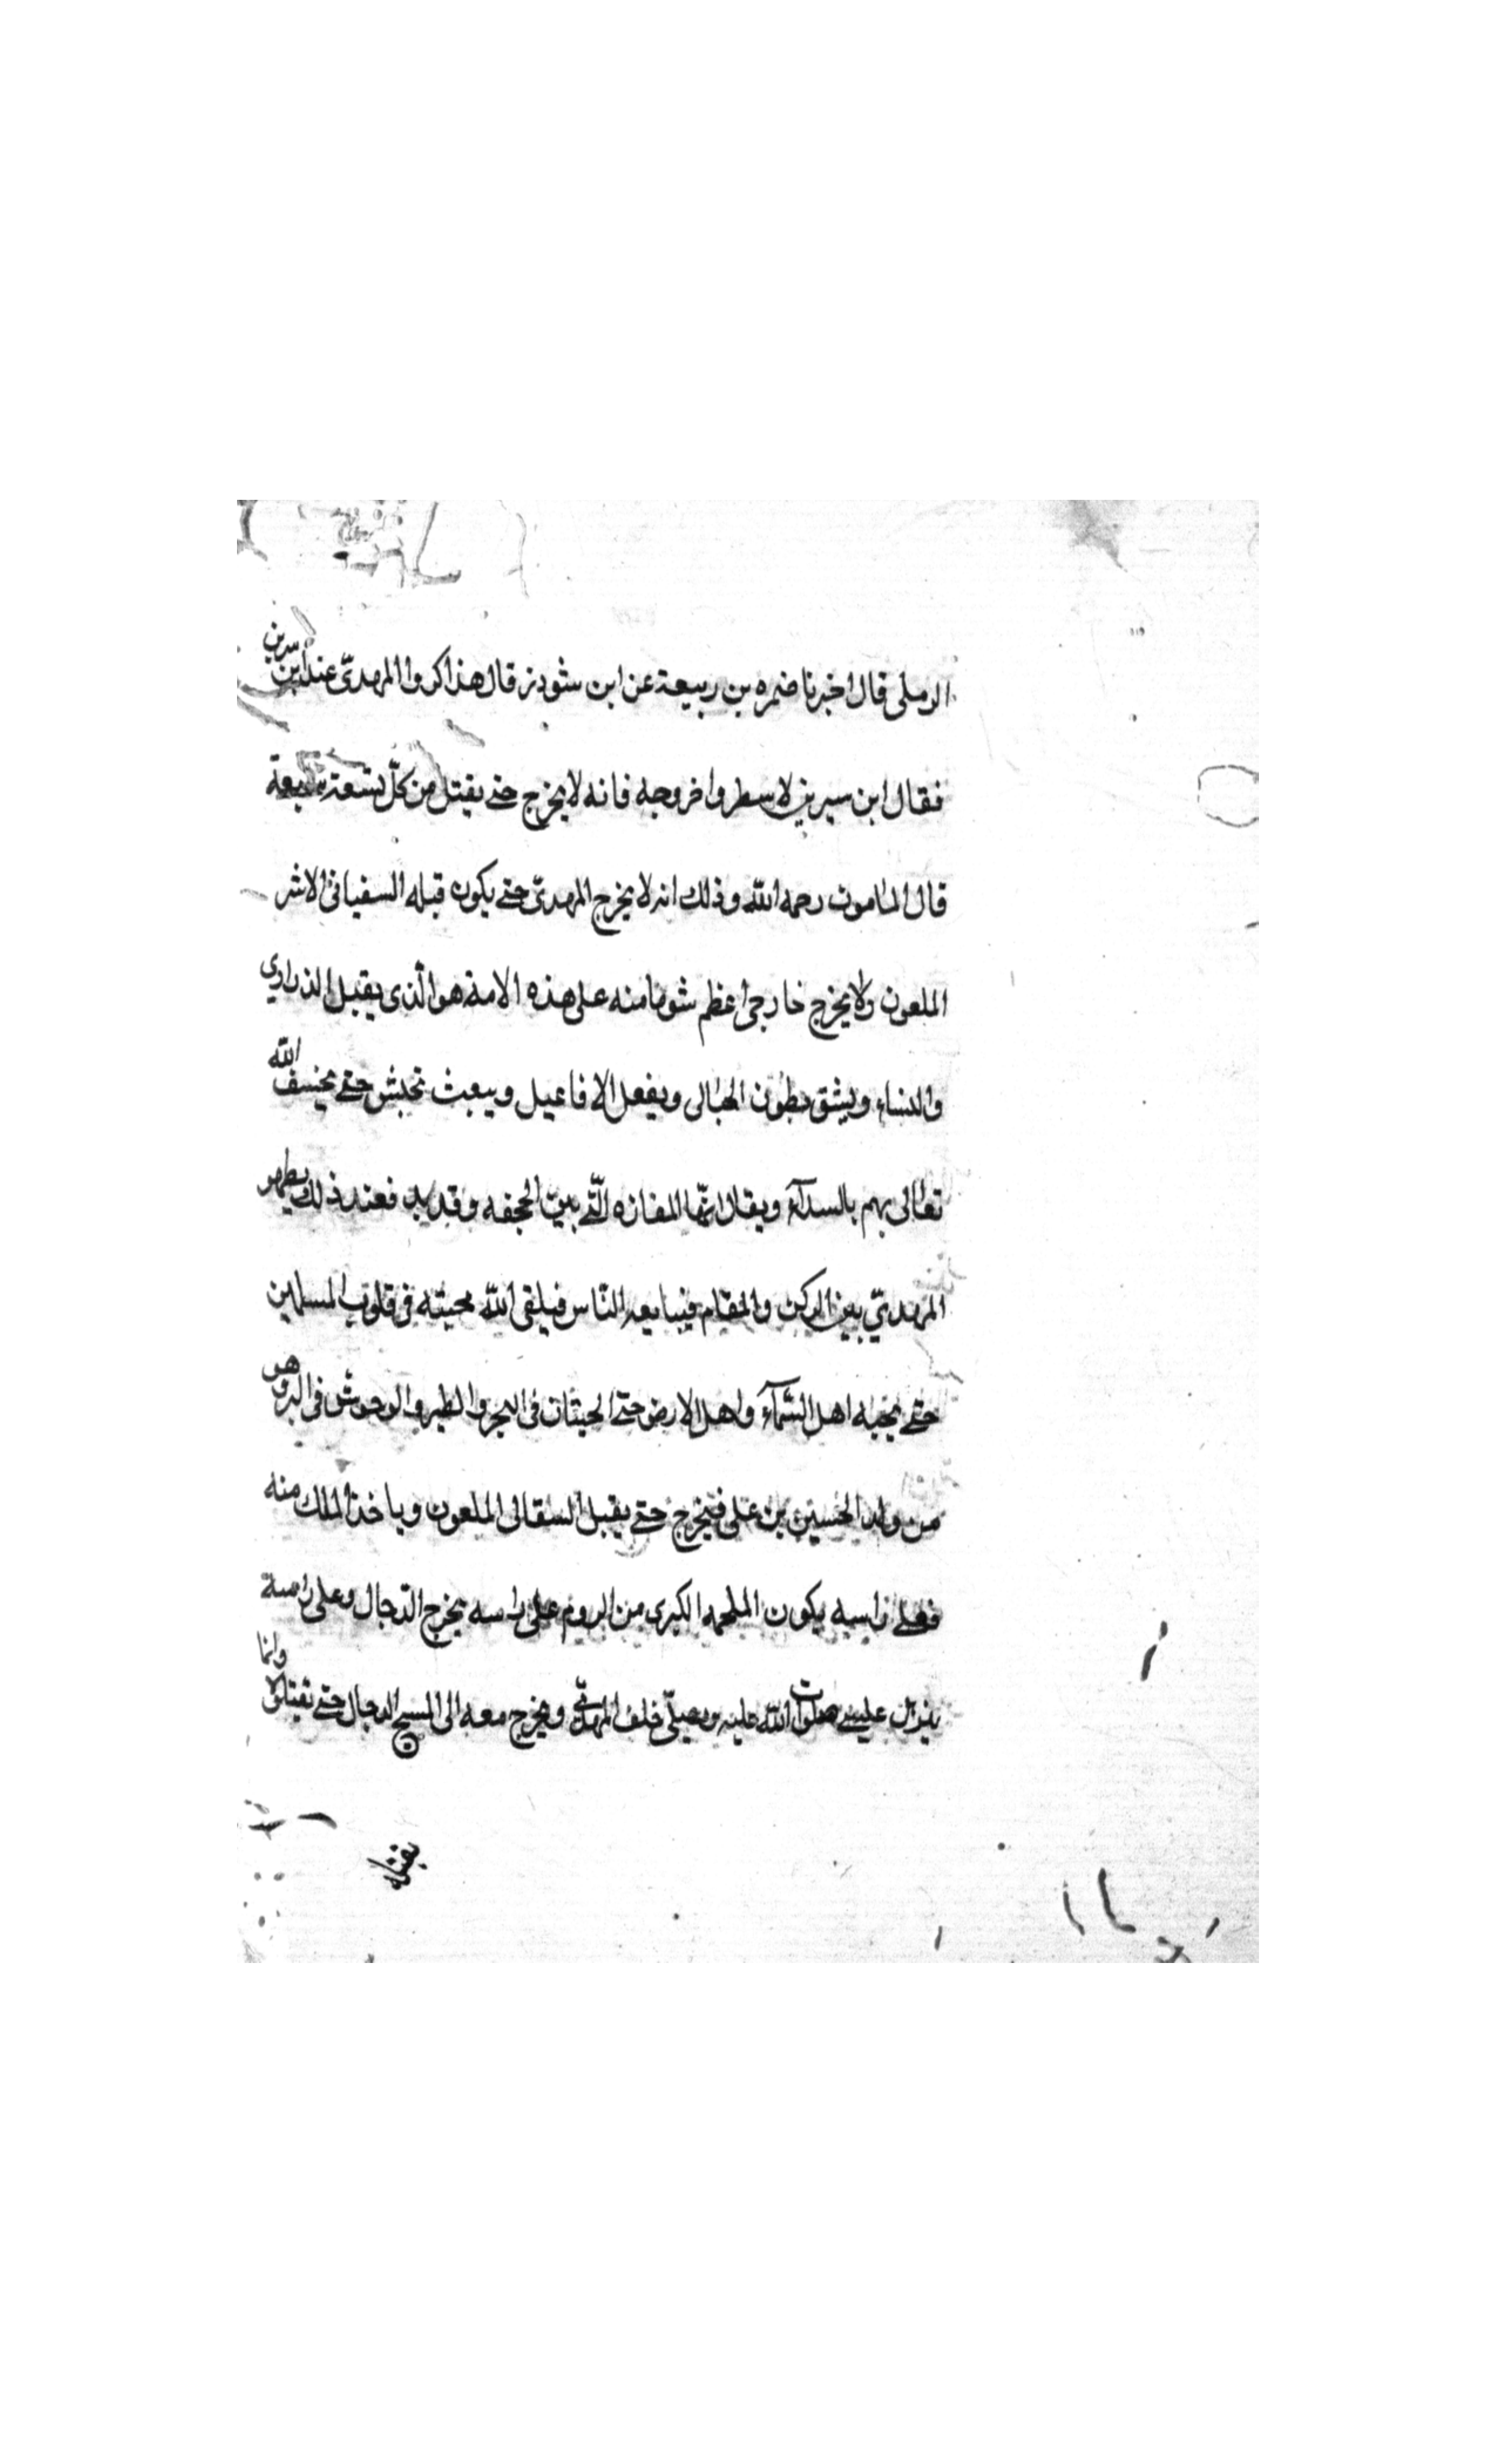 الرملى قال اخبرنا ضمره بن ربيعة عن ابن شوذب قال هذاكروا المهدىّ عند ابن سيرين
فقال ابن سيرين لا سطروا خروجه فانه لا يخرج حتى يقتل من كلّ تسعة سبعة
قال المامون رحمه اللّه وذلك انه لا يخرج المهدىّ حتى يكون قبله السفيانى الاشر
الملعون ولا يخرج خارجى اعظم شوما منه على هذه الامة هو الّذى يقبل الذرارى
والنساء ويشق بطون الحبالى ويفعل الافاعيل ويبعث بجيش حتى يخسف اللّه
تعالى بهم بالبيدآء ويقال انّها المفازه الّتى بين الجحفه وقديد فعند ذلك يظهر
المهدىّ بين الركن والمقام فيبايعه النّاس فيلقى اللّه محبته فى قلوب المسلمين
حتى يحبه اهل السّمآء واهل الارض حتى الحيتان فى البحر والطير والوحوش فى البر وهو
من ولد الحسين بن على فيخرج حتى يقبل السفيانى الملعون وياخذ الملك منه
فعلى راسه يكون الملحمه الكبرى من الروم على راسه يخرج الدّجال وعلى راسه
ينزل عيسى صلوات اللّه عليه ويصلّى خلف المهدىّ ويخرج معه الى المسيح الدجال حتى تقتله وانما